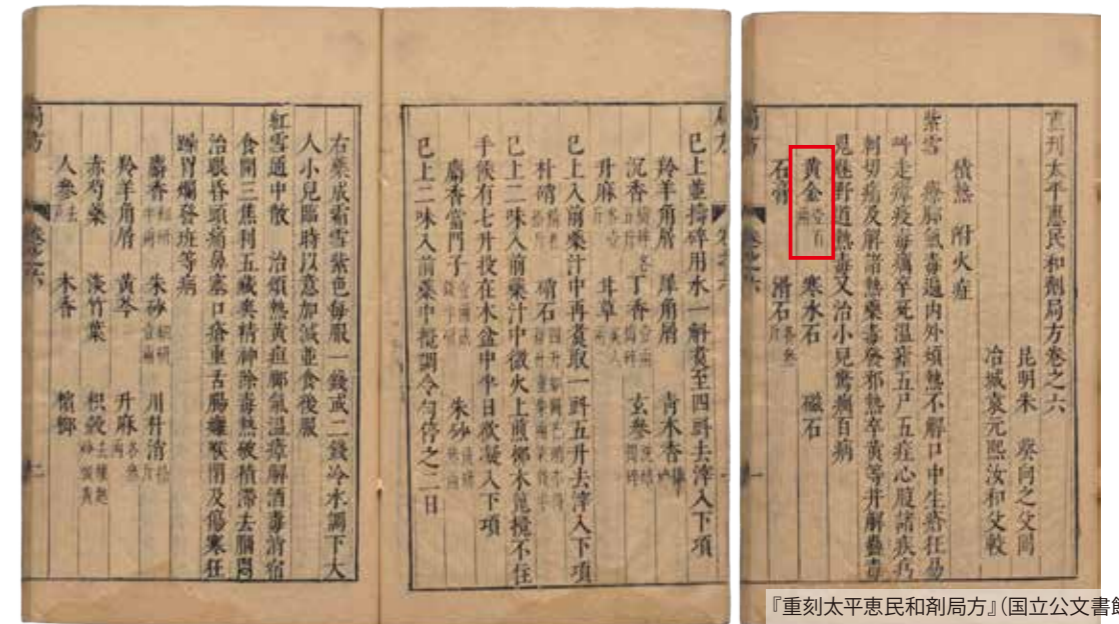 重刊太平惠民和劑局方卷之六
昆明朱 葵向之父同
冶城袁元熙汝和父較
積熱 附火症
紫雪 療脚氣毒遍內外煩熱不解口中生瘡狂易
叫走瘴疫毒癘卒死温瘧五尸五疰心腹諸疾㽲
刺切痛及解諸熱藥毒發邪熱卒黄等并解蠱毒
見魅野道熱毒又治小兒驚癇百病
黄金壹百兩 寒水石 磁石
石膏 滑石各叁斤
已上並擣碎用水一斛煮至四㪷去滓入下項
羚羊角屑 犀角屑 青木香
沉香 丁香 玄參
升麻 甘草
已上入前藥汁中再煮取一㪷五升去滓入下項
朴硝 硝石
已上二味入前藥汁中微火上煎柳木篦攪不住
手候有七升投在木盆中半日欲凝入下項
麝香當門子 朱砂
已上二味入前藥中攪調令勻停之二日
右藥成霜雪紫色每服一錢或二錢冷水調下大
人小兒臨時以意加減並食後服
紅雪通中散 治煩熱黄疸脚氣温瘴解酒毒消宿
食開三焦利五臟爽精神除毒熱破積滯去腦悶
治眼昏頭痛鼻塞口瘡重舌腸癰喉閉及傷寒狂
躁胃爛發班等病
麝香 朱砂 川朴消
羚羊角屑 黄芩 升麻
赤芍藥 淡竹葉 枳殼
人參 木香 檳榔
『重刻太平恵民和剤局方』（国立公文書館